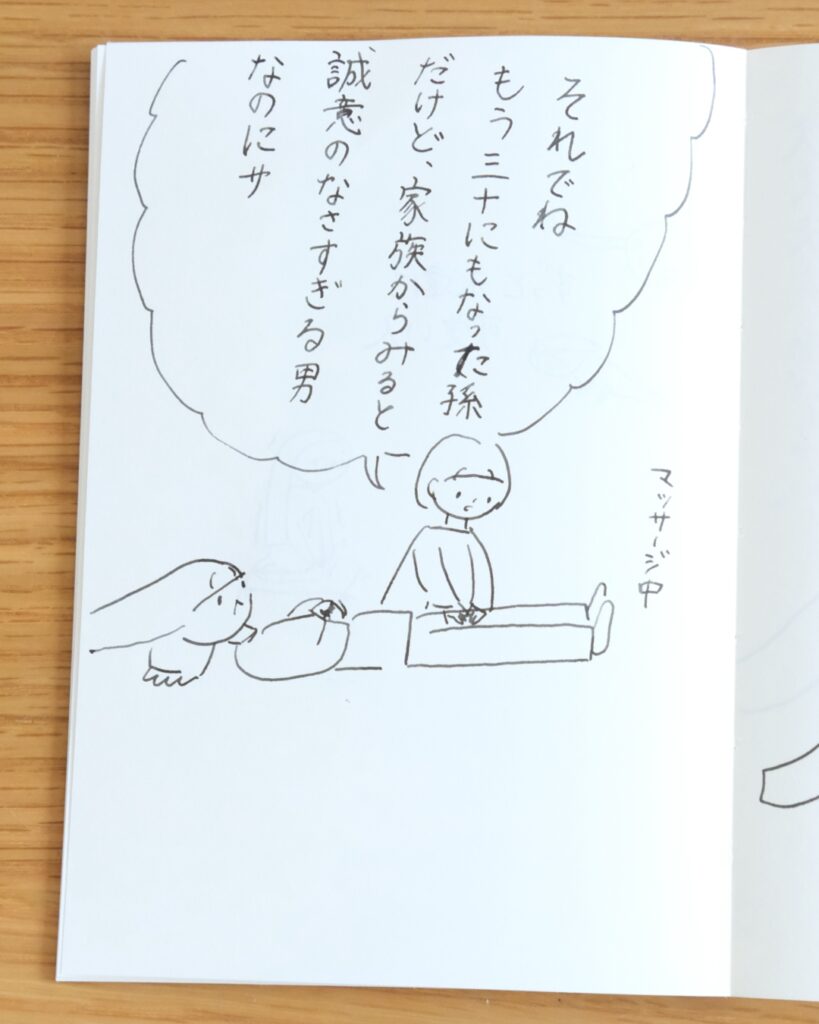 それでね
もう三十にもなった孫
だけど、家族からみると
誠意のなさすぎる男
なのにサ
マッサージ中